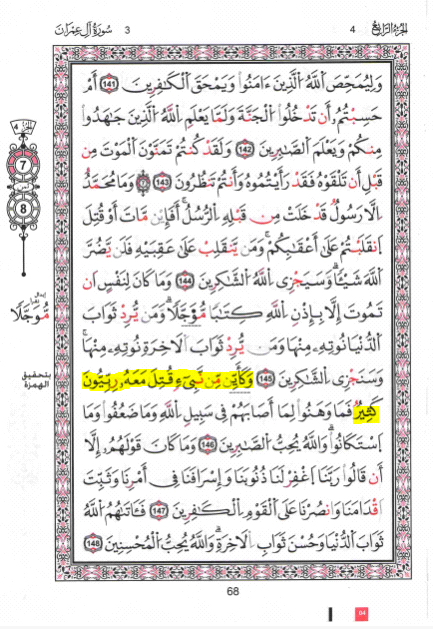 الجزء الرابع 4
3 سورة آل عمران
وَلِيُمَحِّصَ اَللَّهُ الَّذِينَ ءَامَنُواْ وَيَمْحَقَ اَلْكَٰفِرِينَ 141 أَمْ
حَسِبْتُمُ أَن تَدْخُلُواْ الْجَنَّةَ وَلَمَّا يَعْلَمِ اِللَّهُ الَّذِينَ جَٰهَدُواْ
مِنكُمْ وَيَعْلَمَ اَلصَّٰبِرِينَ 142 وَلَقَدْ كُنتُمْ تَمَنَّوْنَ اَلْمَوْتَ مِن
قَبْلِ أَن تَلْقَوْهُ فَقَدْ رَأَيْتُمُوهُ وَأَنتُمْ تَنظُرُونَ 143 وَمَا مُحَمَّدٌ
اِلَّا رَسُولٌ قَدْ خَلَتْ مِن قَبْلِهِ اِلرُّسُلُ أَفَإِيْن مَّاتَ أَوْ قُتِلَ
اَنقَلَبْتُمْ عَلَىٰ أَعْقَٰبِكُمْ وَمَن يَنقَلِبْ عَلَىٰ عَقِبَيْهِ فَلَن يَّضُرَّ
اَللَّهَ شَيْـًٔا وَسَيَجْزِى اِللَّهُ الشَّٰكِرِينَ 144 وَمَا كَانَ لِنَفْسٍ اَن
تَمُوتَ إِلَّا بِإِذْنِ اِللَّهِ كِتَٰبًا مُّؤَجَّلًا وَمَن يُّرِدْ ثَوَابَ
اَلدُّنْيَا نُوتِهِ مِنْهَا وَمَن يُّرِدْ ثَوَابَ اَلَاخِرَةِ نُوتِهِ مِنْهَا
وَسَنَجْزِى اِلشَّٰكِرِينَ 145 وَكَأَيِّن مِّن نَّبِيٓءٍ قُتِلَ مَعَهُۥ رِبِّيُّونَ
كَثِيرٌ فَمَا وَهَنُواْ لِمَا أَصَابَهُمْ فِى سَبِيلِ اِللَّهِ وَمَا ضَعُفُواْ وَمَا
اَسْتَكَانُواْ وَاللَّهُ يُحِبُّ الصَّٰبِرِينَ 146 وَمَا كَانَ قَوْلَهُمُ إِلَّا
أَن قَالُواْ رَبَّنَا اَغْفِرْ لَنَا ذُنُوبَنَا وَإِسْرَافَنَا فِى أَمْرِنَا وَثَبِّتَ
اَقْدَامَنَا وَانصُرْنَا عَلَى اَلْقَوْمِ اِلْكَٰفِرِينَ 147 فَـَٔاتَىٰهُمُ اُللَّهُ
ثَوَابَ اَلدُّنْيَا وَحُسْنَ ثَوَابِ اِلَاخِرَةِ وَاللَّهُ يُحِبُّ الْمُحْسِنِينَ 148
7
8
مُّوَجَّلًا
بتحقيق
الهمزة
68
04